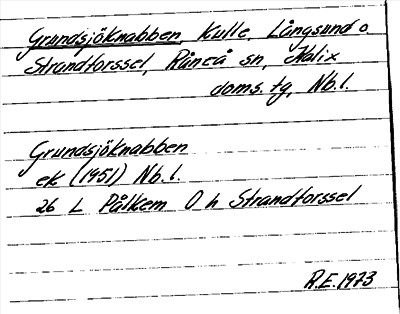 Grundsjöknabben, Kulle, Långsund o.
Strandforssel, Råneå sn, Kalix
doms. tg, Nb.l.
Grundsjöknabben
ek (1951) Nb.l.
26 L Pålkem 0 h Strandforssel
R.E. 1973